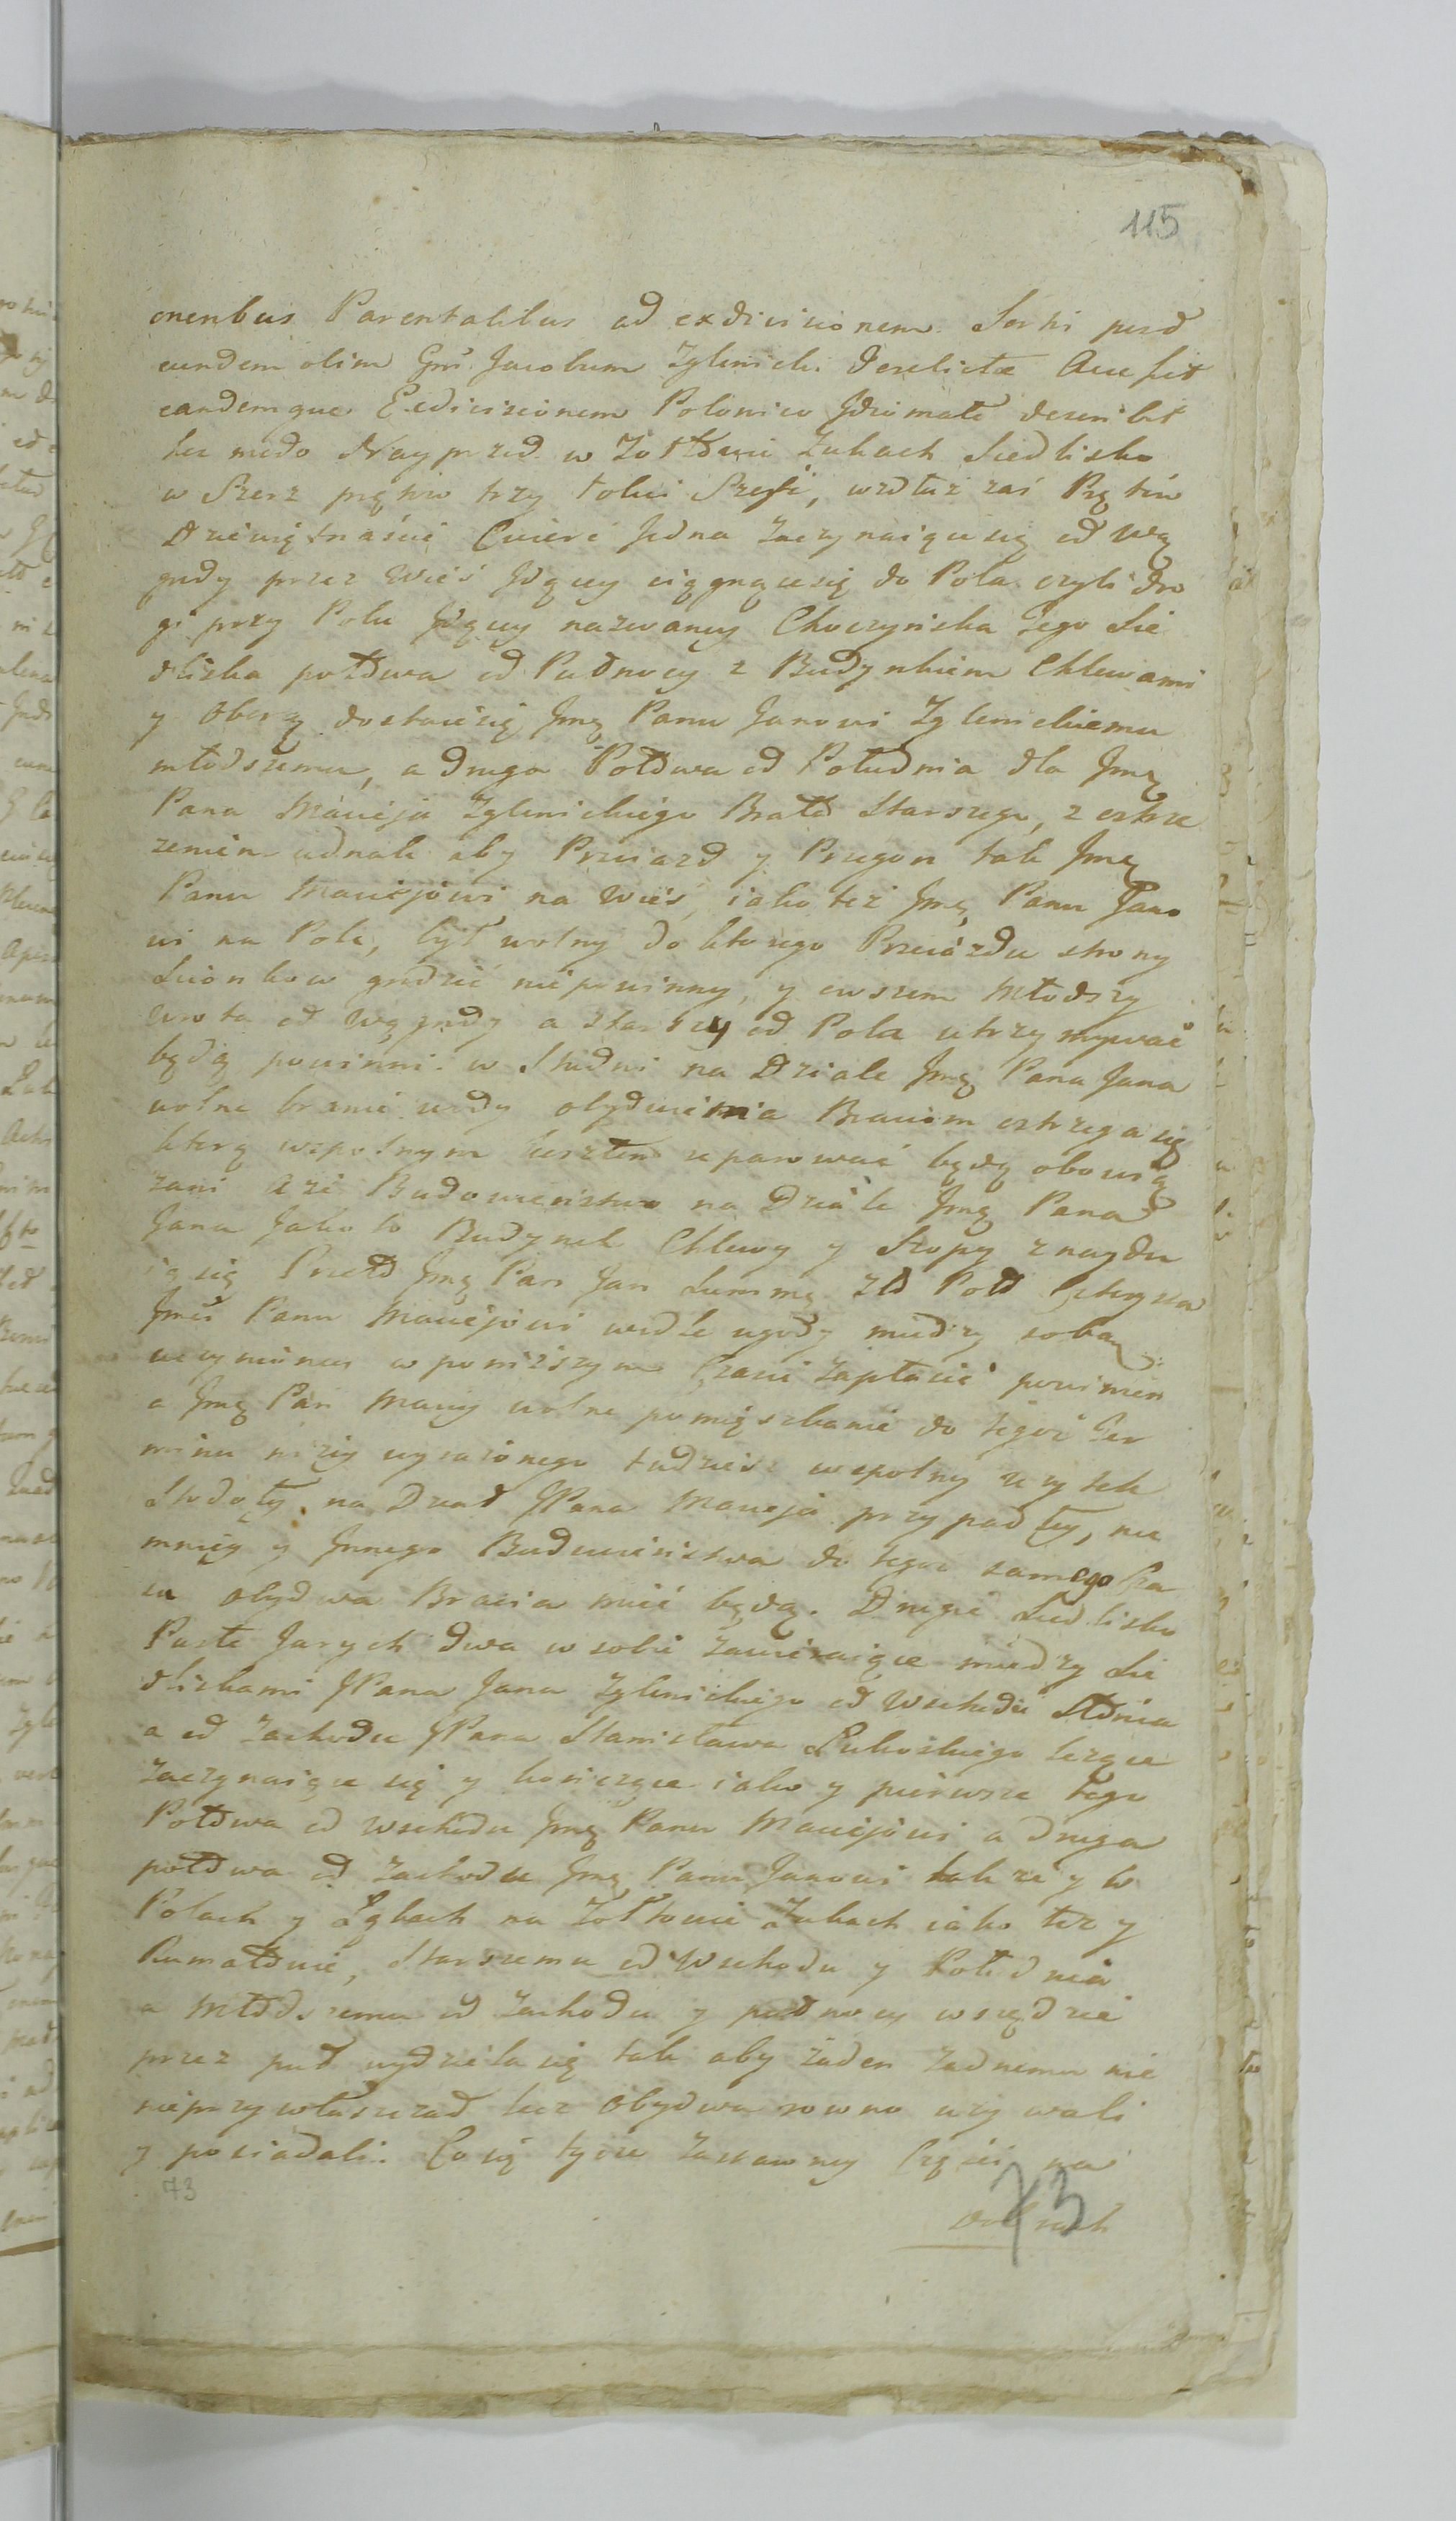 115
onenbus Parentalibus ad exdivisionem Sorti post
eundem olim Gni Jacobum Zglinicki derelictæ Accessit
eandemque Exdivisionem Polonico Jdiomate describit
hoc modo Nayprzod w Zołtowie Zukach Siedlisko
w Szerz prętow trzy łokci Sześć, wzdłuż zaś Prętów
Dziewiętnaście Cwierć Jedna Zaczynaiące się od Wą
grody przez Wieś Jdącey ciągnące się do Pola czyli dro
gi przy Polu Jdącey nazwaney Choczynska Tego Sie
dliska połowa od Pułnocy z Budynkiem Chlewami
y Oborą dostaie się Jmę Panu Janowi Zglinickiemu
młodszemu, a druga Połowa od Południa dla Jmę
Pana Macieja Zglinickiego Brata Starszego, z ostrze
zeniem iednak aby Przeiazd y Przegon tak Jmę
Panu Maciejowi na Wieś, iako też Jmę Panu Jano
wi na Pole, był wolny do ktorego Przeiazdu strony
grodzić niepowinny, y owszem Młodszy
Wrota od Wągrody a Starszy od Pola utrzymywać
będą powinni. w Studni na Dziale Jmę Pana Jana
wolne branie wody obydwiema Braciom ostrzega się
ktorą wspolnym kosztem reparować będą obowią
zani A że Budowienstwo na Dziale Jmę Pana
Jana Jako to Budynek Chlewy y Szopy znaydu
ią się Przeto Jmę Pan Jan Summę
Jmci Panu Maciejowi wedle ugody miedzy sobą
uczynioney w poniższym Czasie Zapłacić powinien
a Jmę Pan Maciey wolne pomięszkanie do tegoż Ter
minu niżey wyrażonego tudziesz wspolny użytek
Stodoły na Dział JPana Macieja przypadłey, nie
mniey y Jnnego Budowienstwa do tegoż samego Cza
su obydwa Bracia mieć będą. Drugie Siedlisko
Puste Jarych dwa w sobie Zawieraiące miedzy Sie
dliskami JPana Jana Zglinickiego od Wschodu Słońca
a od Zachodu JPana Stanisława Łukoskiego leżące
Zaczynaiące się y konczące iako y pierwsze tego
Połowa od Wschodu Jmę Panu Maciejowi a druga
połowa od Zachodu Jmę Panu Janowi także y w
Polach y Łąkach na Zołtowie Zukach iako też y
Rumołtowie, Starszemu od Wschodu y Południa
a Młodszemu od Zachodu y pułnocy wszędzie
przez puł wydziela się tak aby żaden Zadnemu nic
nieprzywłaszczał lecz Obydwa rowno używali
y posiadali. Co się tycze Zastawney Częśći na
73
Dobrach
73